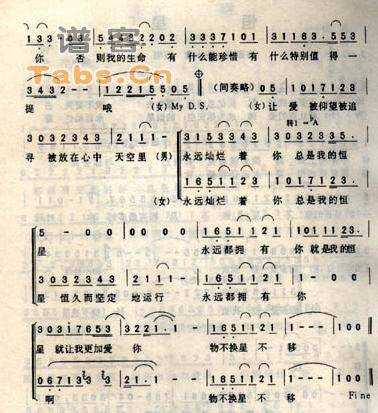 133 031 5 4 3 2 2 0 2 3 3 3 7 1 2 3 1 1 6 3. 5 5 3
你 否 则我的生命 有 什么能珍惜 有 什么特别值 得 一
谱客
Tabs.Cn
3 4 3 2 - - 1 2 2 1 5 5 0 5 (间奏略) 0 5 1 0 1 7 1 2 3
提 哦 (女) My D.S. (女)让 爱 被仰望被追
转1=A
3 0 3 2 3 4 3 2 1 1 1 - 1 6 5 1 1 2 3 4 3 3 0 3 2 3 3 5.
寻 被放在心中 天空里 (男) 永远灿烂 着 你 总是我的恒
1 6 5 1 1 2 3 1 0 1 7 1 2 3.
(女) 永远灿烂 着 你 总是我的恒
5 - 0 0 0 0 0 0 1 6 5 1 1 2 3 4 3 3 0 3 2 3 3 5.
星 永远都拥 有 你 就是我的恒
3 0 3 2 3 4 3 2 1 1 1 - 1 6 5 1 1 2 1 2 1 - 0 0
星 恒久而坚定 地运行 永远都拥 有 你
3 0 3 1 7 6 5 3 3 2 2 1. 1 - 1 6 5 1 1 2 1 1 - - - 1 0 0
星 就让我更加爱 你 物不换星 不 移
0 6 7 1 3 3 2 1. 1 - 1 6 5 1 1 2 1 1 - - - 1 0 0
啊 物不换星 不 移
Fine